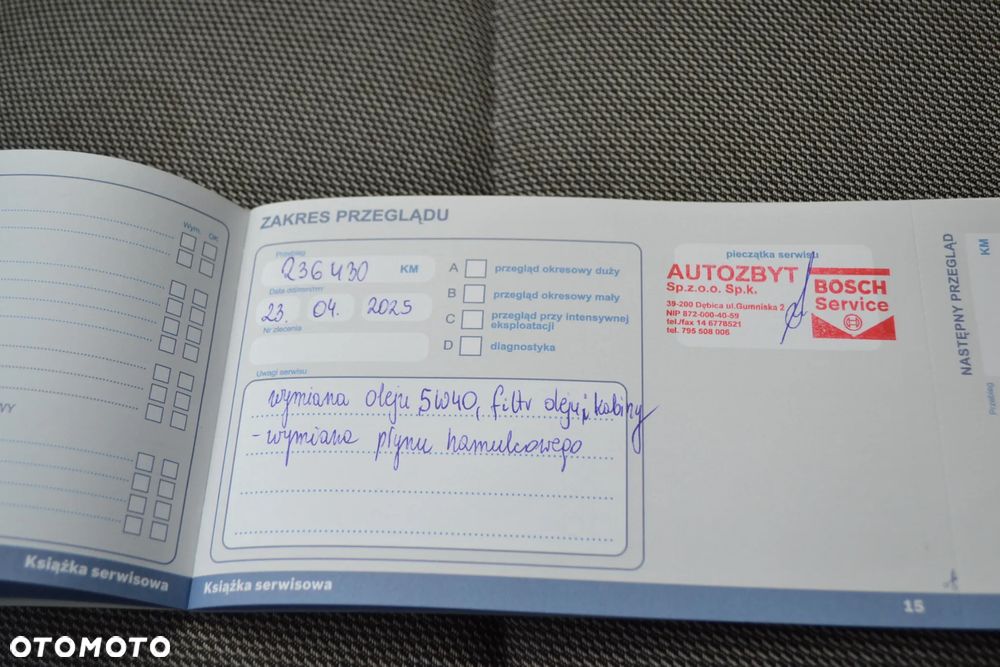 Wym. OK
WY
Książka serwisowa
ZAKRES PRZEGLĄDU
Przebieg
236430 KM
Data
23. 04. 2025
Nr zlecenia
A przegląd okresowy duży
B przegląd okresowy mały
C przegląd przy intensywnej
eksploatacji
D diagnostyka
Uwagi serwisu
wymiana oleju 5W40, filtr oleju, i kabiny
- wymiana płynu hamulcowego
pieczątka serwisu
AUTOZBYT
Sp.z.o.o. Sp.k.
39-200 Dębica ul.Gumniska 2
NIP 872-000-40-59
tel./fax 14 6778521
tel. 795 508 006
BOSCH
Service
NASTĘPNY PRZEGLĄD
KM
Przebieg
Książka serwisowa
15
OTOMOTO